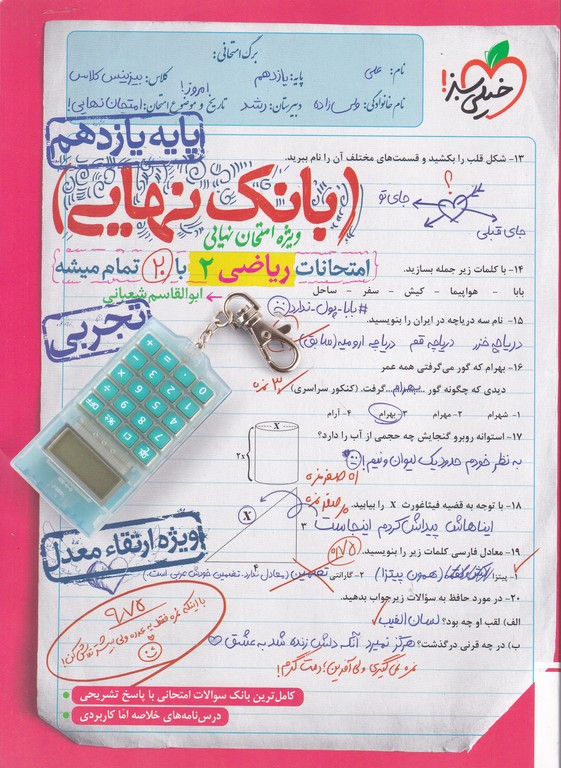 خیلی سبز!
برگ امتحانی:
نام: علی
پایه: یازدهم
کلاس: بیزینس کلاس
نام خانوادگی:
دبیرستان: رشد
تاریخ و موضوع امتحان: امروز! امتحان نهایی!
پایه یازدهم
۱۳- شکل قلب را بکشید و قسمت‌های مختلف آن را نام ببرید.
؟
جای تو
جای قبلی
(بانک نهایی)
ویژه امتحان نهایی
امتحانات ریاضی ۲ با ۲۰ تمام میشه
ابوالقاسم شعبانی
تجربی
۱۴- با کلمات زیر جمله بسازید.
بابا - هواپیما - کیش - سفر - ساحل
#بابا-پول-ندارد
۱۵- نام سه دریاچه در ایران را بنویسید.
دریاچه خزر دریاچه قم دریاچه ارومیه (سابق)
۱۶- بهرام که گور می‌گرفتی همه عمر
دیدی که چگونه گور ...بهرام... گرفت. (کنکور سراسری)
۱- شهرام ۲- مهرام ۳- بهرام ۴- آرام
۱۷- استوانه روبرو گنجایش چه حجمی از آب را دارد؟
X
2X
به نظر خودم حدود یک لیوان و نیم!
۱۸- با توجه به قضیه فیثاغورث X را بیابید.
ایناهاش پیداش کردم اینجاست
X
۳
۴
۱۹- معادل فارسی کلمات زیر را بنویسید.
۱- پیتزا (همون پیتزا) ۲- گارانتی تضمین (معادل ندارد. تضمین خودش عربی است.)
۲۰- در مورد حافظ به سؤالات زیر جواب بدهید.
الف) لقب او چه بود؟ لسان الغیب
ب) در چه قرنی درگذشت؟ هرگز نمیرد آنکه دلش زنده شد به عشق
نمره نمی‌گیری ولی آفرین! دمت گرم!
ویژه ارتقاء معدل
۹/۷۵
کامل‌ترین بانک سوالات امتحانی با پاسخ تشریحی
درس‌نامه‌های خلاصه اما کاربردی
0
1
2
3
4
5
6
7
8
9
OFF